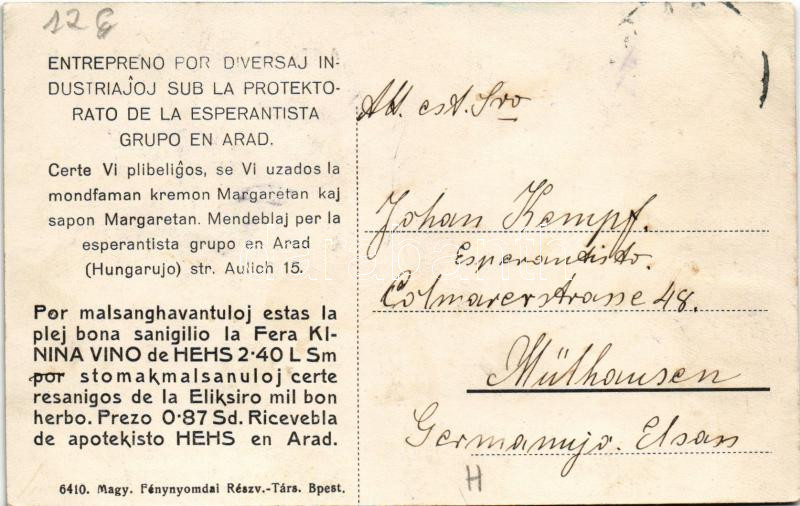 12 €
ENTREPRENO POR DIVERSAJ IN-
DUSTRIAĴOJ SUB LA PROTEKTO-
RATO DE LA ESPERANTISTA
GRUPO EN ARAD.
Certe Vi plibeliĝos, se Vi uzados la
mondfaman kremon Margaretan kaj
sapon Margaretan. Mendeblaj per la
esperantista grupo en Arad
(Hungarujo) str. Aulich 15.
Por malsanghavantuloj estas la
plej bona sanigilio la Fera KI-
NINA VINO de HEHS 2·40 L Sm
por stomakmalsanuloj certe
resanigos de la Eliksiro mil bon
herbo. Prezo 0·87 Sd. Ricevebla
de apotekisto HEHS en Arad.
6410. Magy. Fénynyomdai Részv.-Társ. Bpest.
Alt. est. Sro
Johan Kempf.
Esperantisto.
Colmarerstrasse 48.
Mülhausen
Germanujo. Elsas
H